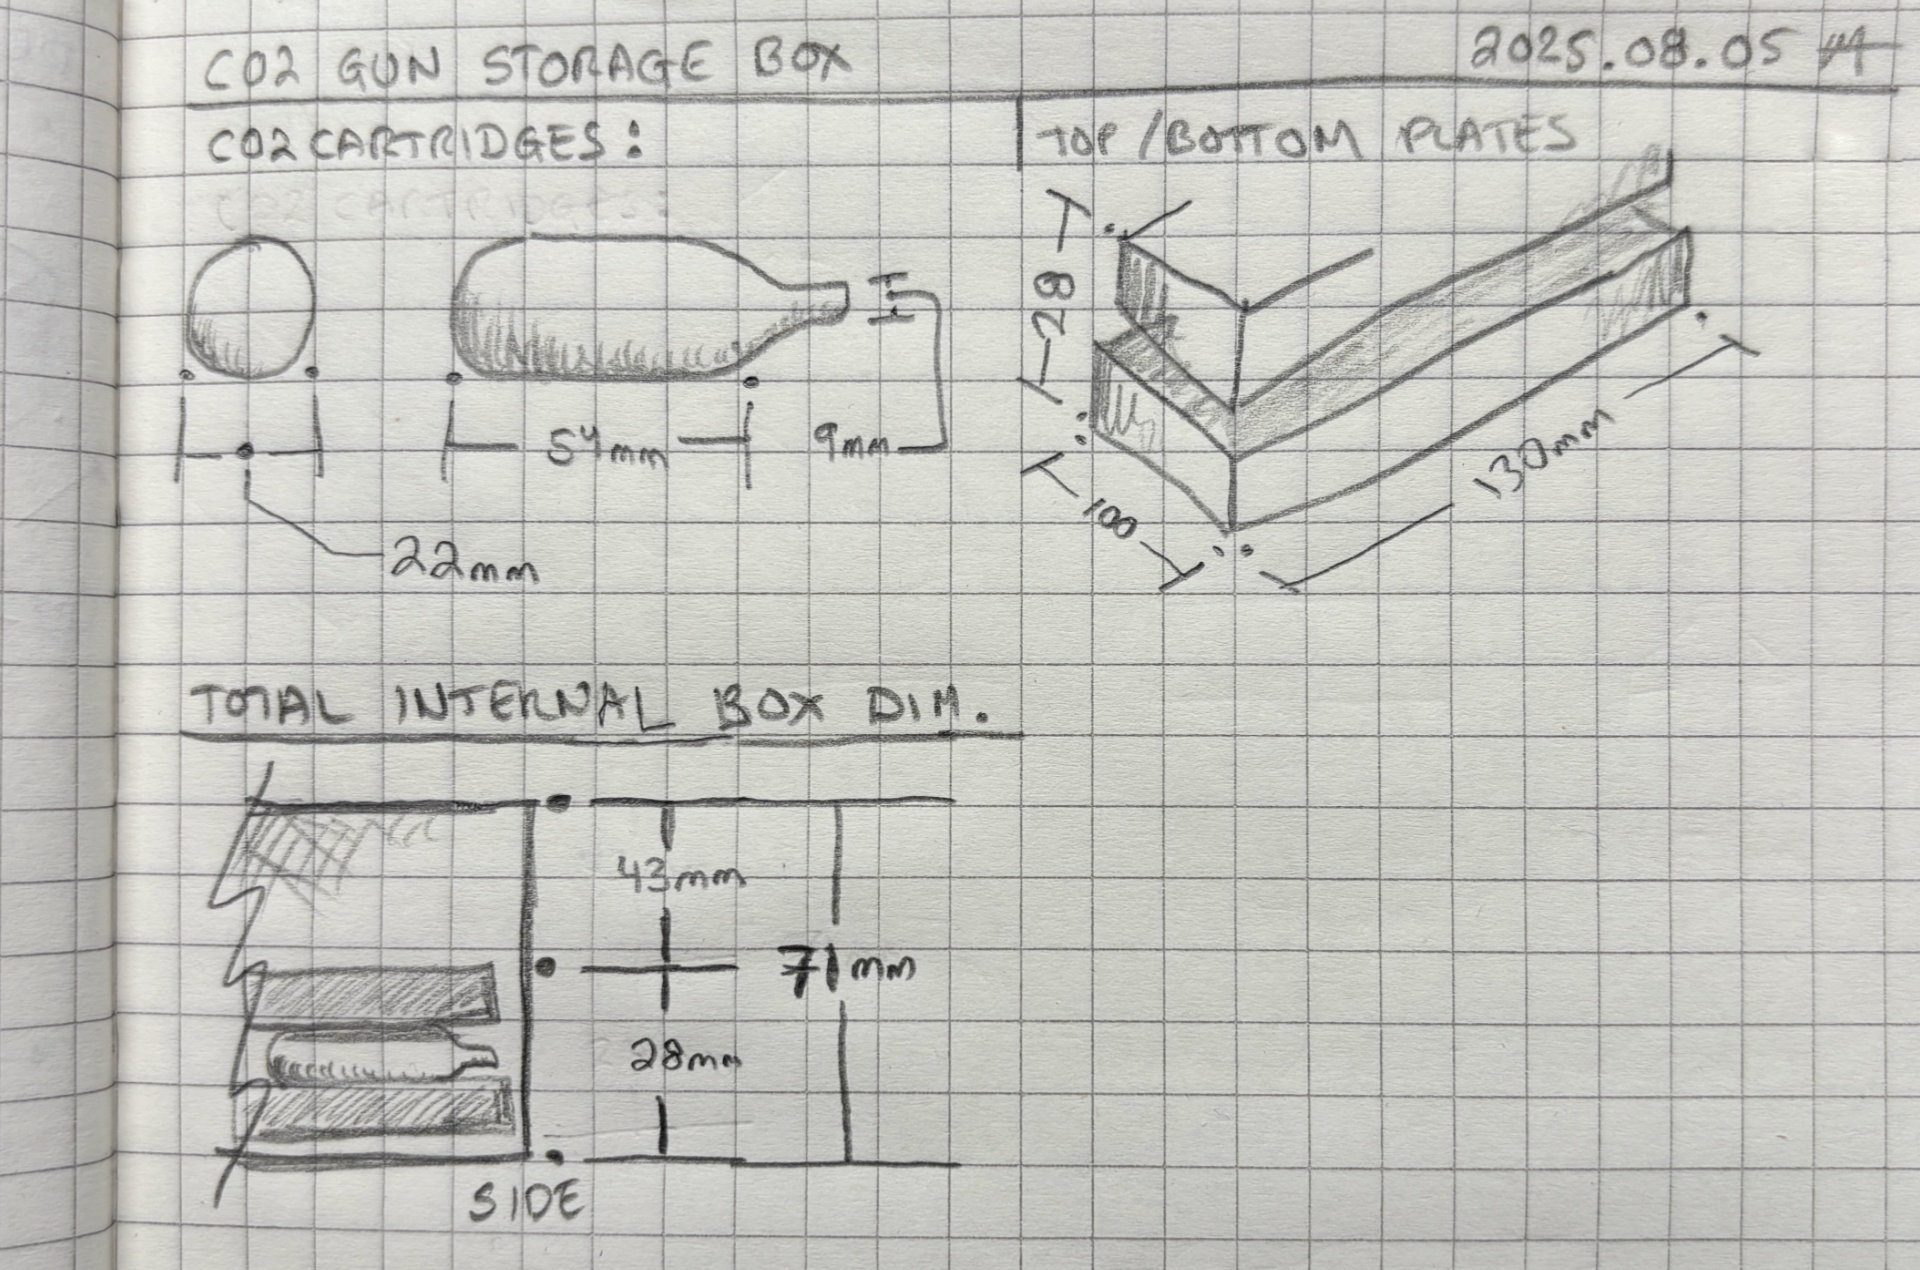 CO2 GUN STORAGE BOX
2025.08.05
CO2 CARTRIDGES:
CO2 CARTRIDGES:
54mm
9mm
22mm
TOP/BOTTOM PLATES
28
100
130mm
TOTAL INTERNAL BOX DIM.
43mm
71mm
28mm
SIDE